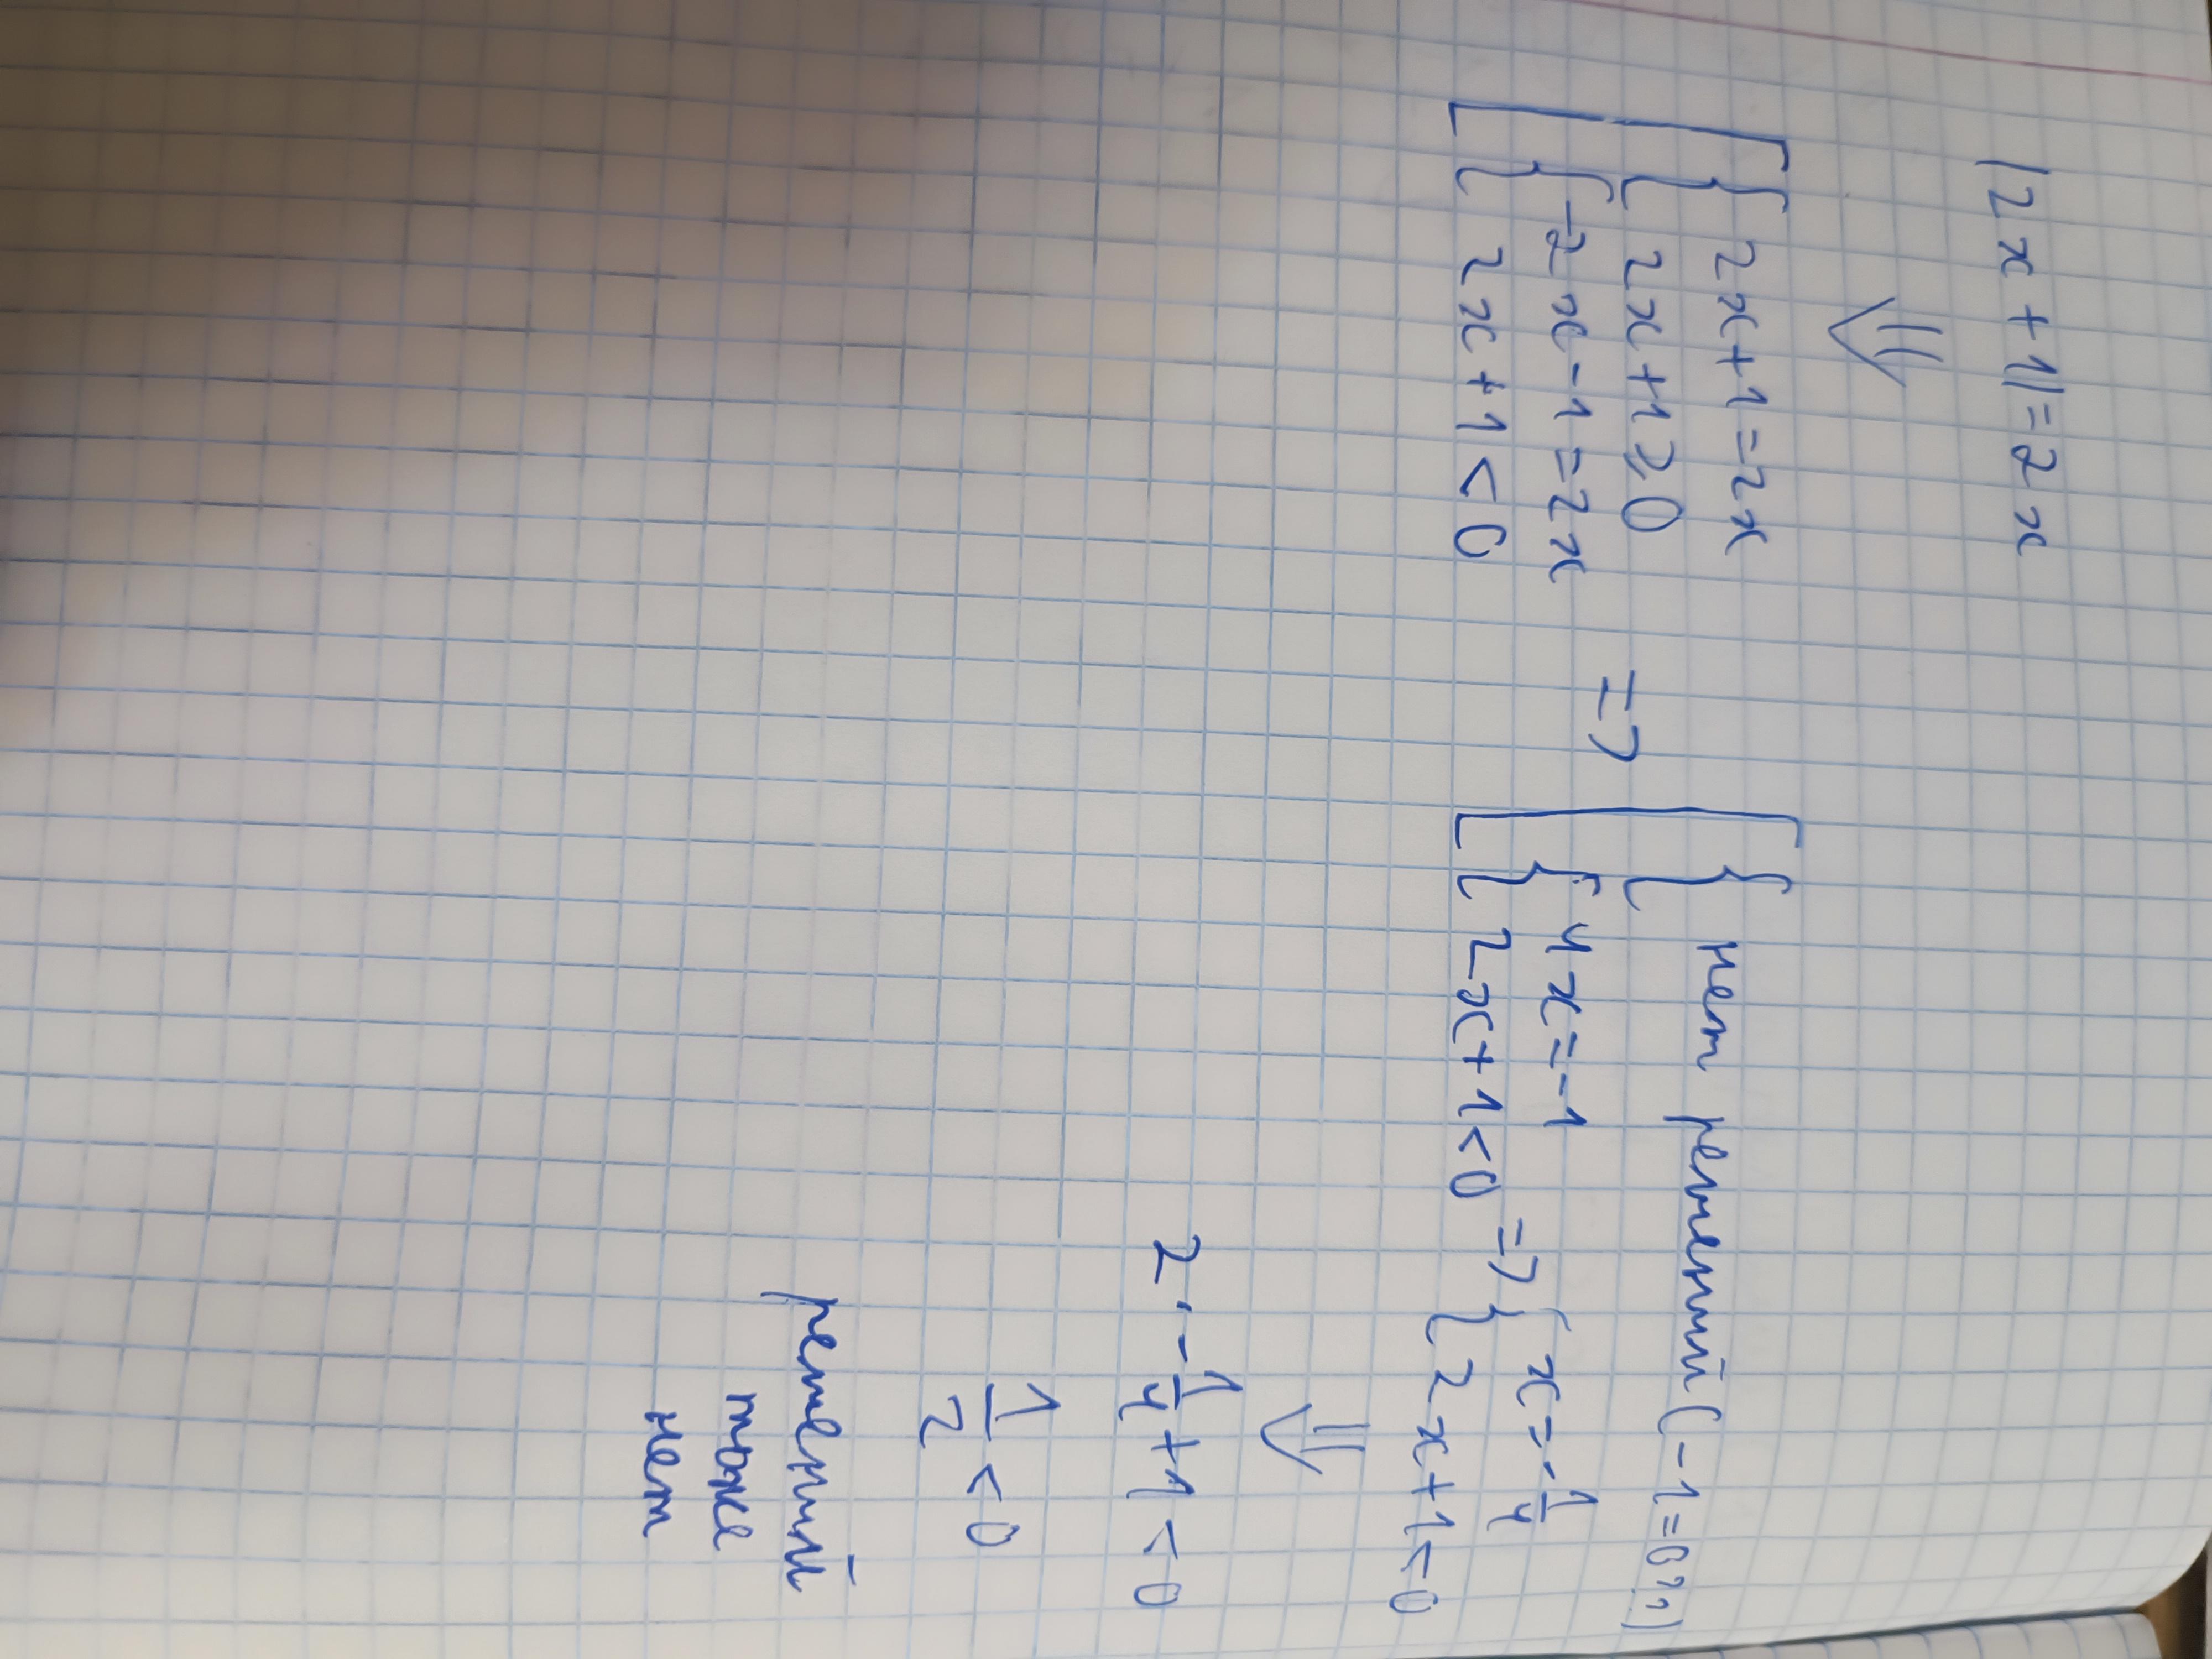 |2x+1|=2x
⇓
[ { 2x+1=2x
2x+1⩾0
{ -2x-1=2x
2x+1<0
=>
[ { нет решений (-1=0??)
{ 4x=-1
2x+1<0
=> { x=-1/4
2x+1<0
⇓
2·-1/4+1<0
1/2<0
решений
тоже
нет